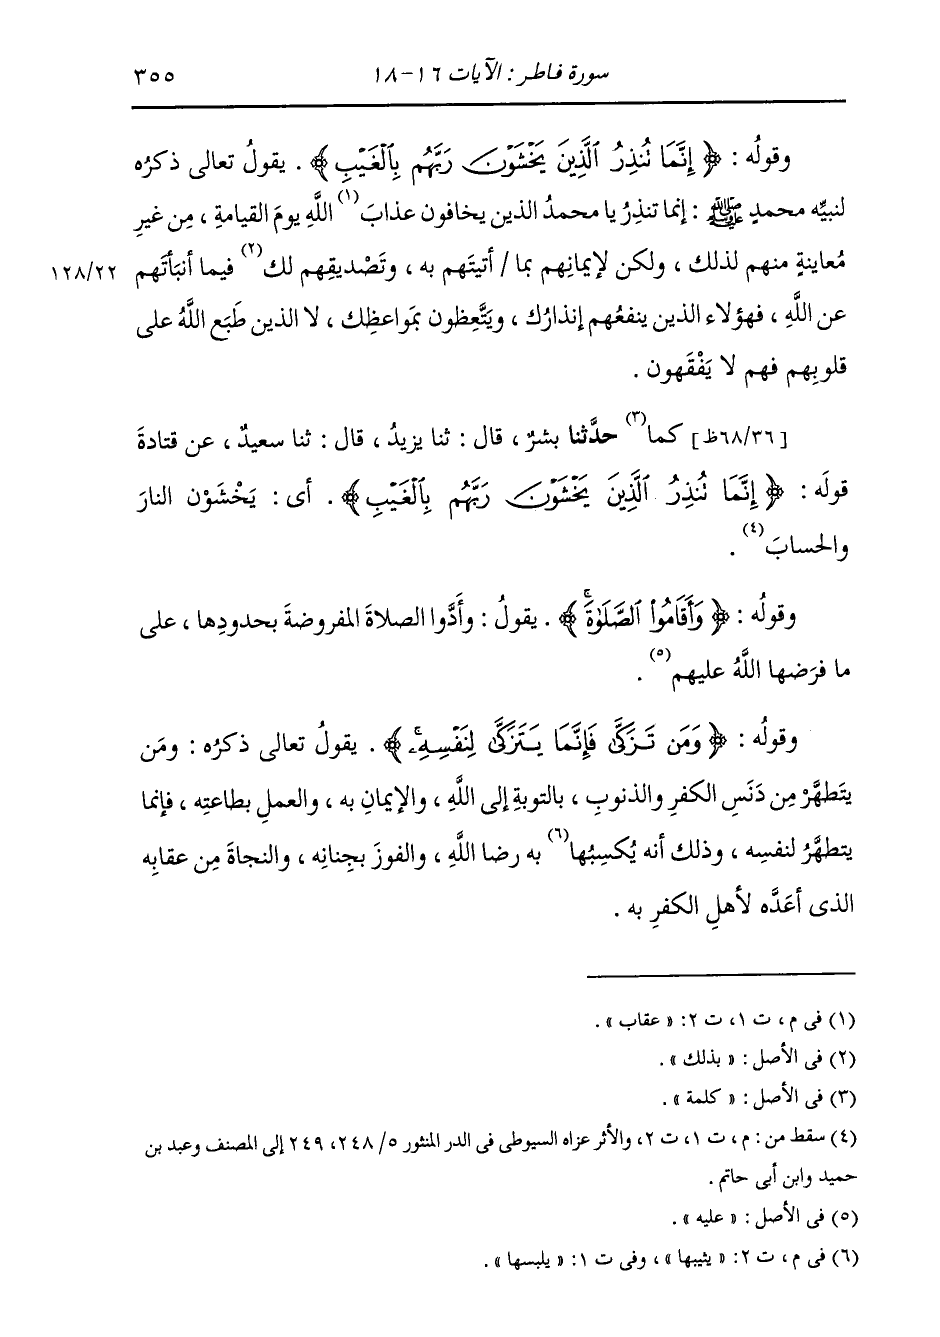 سورة فاطر : الآيات ١٦-١٨ ٣٥٥
وقولُه : ﴿ إِنَّمَا تُنذِرُ ٱلَّذِينَ يَخْشَوْنَ رَبَّهُم بِٱلْغَيْبِ ﴾ . يقولُ تعالى ذكرُه
لنبيِّه محمدٍ ﷺ : إنما تنذِرُ يا محمدُ الذين يخافون عذابَ(١) اللَّهِ يومَ القيامةِ ، مِن غيرِ
مُعاينةٍ منهم لذلك ، ولكن لإيمانِهم بما / أتيتَهم به ، وتَصْديقِهم لك(٢) فيما أنبَأتَهم ١٢٨/٢٢
عن اللَّهِ ، فهؤلاء الذين ينفعُهم إنذارُك ، ويَتَّعِظون بمَواعظِك ، لا الذين طَبَع اللَّهُ على
قلوبِهم فهم لا يَفْقَهون .
[ ٦٨/٣٦ظ ] كما(٣) حدَّثنا بشرٌ ، قال : ثنا يزيدُ ، قال : ثنا سعيدٌ ، عن قتادةَ
قولَه : ﴿ إِنَّمَا تُنذِرُ ٱلَّذِينَ يَخْشَوْنَ رَبَّهُم بِٱلْغَيْبِ ﴾ . أى : يَخْشَوْن النارَ
والحسابَ(٤) .
وقولُه : ﴿ وَأَقَامُوا۟ ٱلصَّلَوٰةَۚ ﴾ . يقولُ : وأَدَّوا الصلاةَ المفروضةَ بحدودِها ، على
ما فرَضها اللَّهُ عليهم(٥) .
وقولُه : ﴿ وَمَن تَزَكَّىٰ فَإِنَّمَا يَتَزَكَّىٰ لِنَفْسِهِۦۚ ﴾ . يقولُ تعالى ذكرُه : ومَن
يتَطهَّرْ مِن دَنَسِ الكفرِ والذنوبِ ، بالتوبةِ إلى اللَّهِ ، والإيمانِ به ، والعملِ بطاعتِه ، فإنما
يتطهَّرُ لنفسِه ، وذلك أنه يُكسِبُها(٦) به رضا اللَّهِ ، والفوزَ بجِنانِه ، والنجاةَ مِن عقابِه
الذى أعَدَّه لأهلِ الكفرِ به .
(١) فى م ، ت ١، ت ٢: « عقاب » .
(٢) فى الأصل : « بذلك » .
(٣) فى الأصل : « كلمة » .
(٤) سقط من : م ، ت ١، ت ٢، والأثر عزاه السيوطى فى الدر المنثور ٥/ ٢٤٨، ٢٤٩ إلى المصنف وعبد بن
حميد وابن أبى حاتم .
(٥) فى الأصل : « عليه » .
(٦) فى م ، ت ٢: « يثيبها » ، وفى ت ١: « يلبسها » .